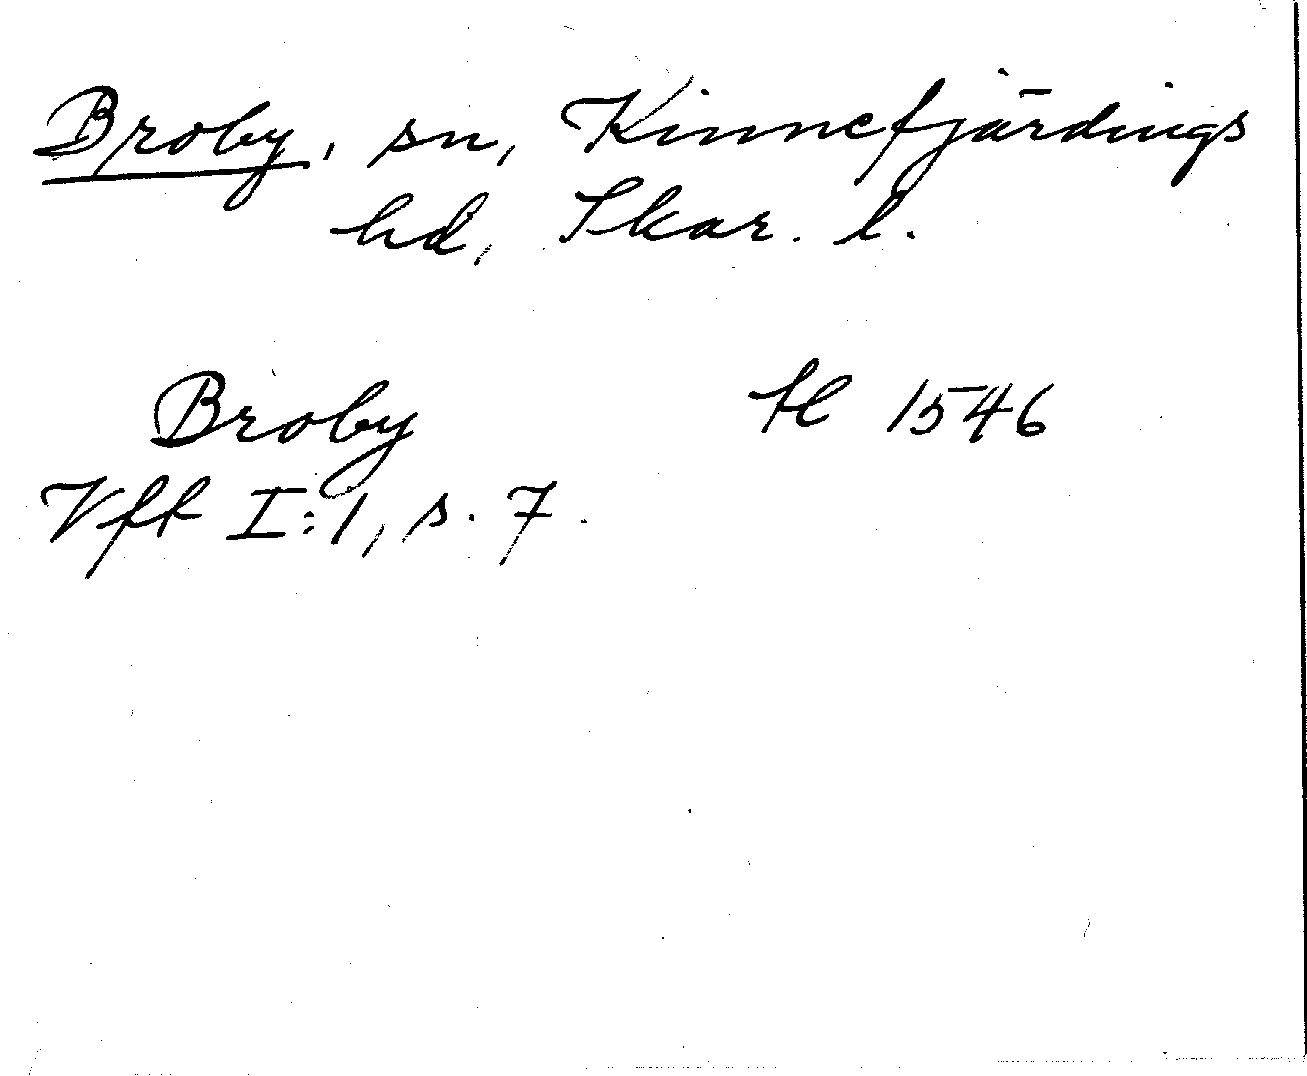 Broby, sn, Kinnefjärdings
hd, Skar. l.
Broby H 1546
Vft I:1, s. 7.